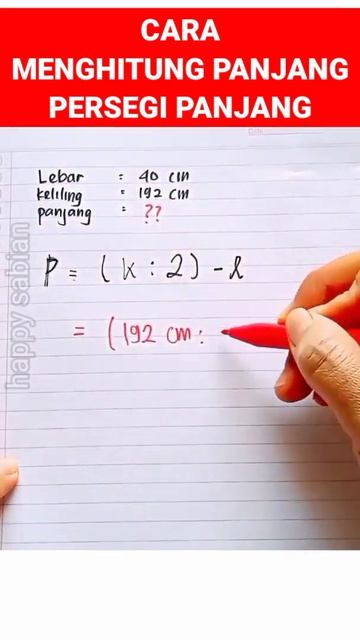 CARA
MENGHITUNG PANJANG
PERSEGI PANJANG
Lebar : 40 cm
keliling : 192 cm
panjang : ??
P = (k : 2) - l
= (192 cm :
happy sabian